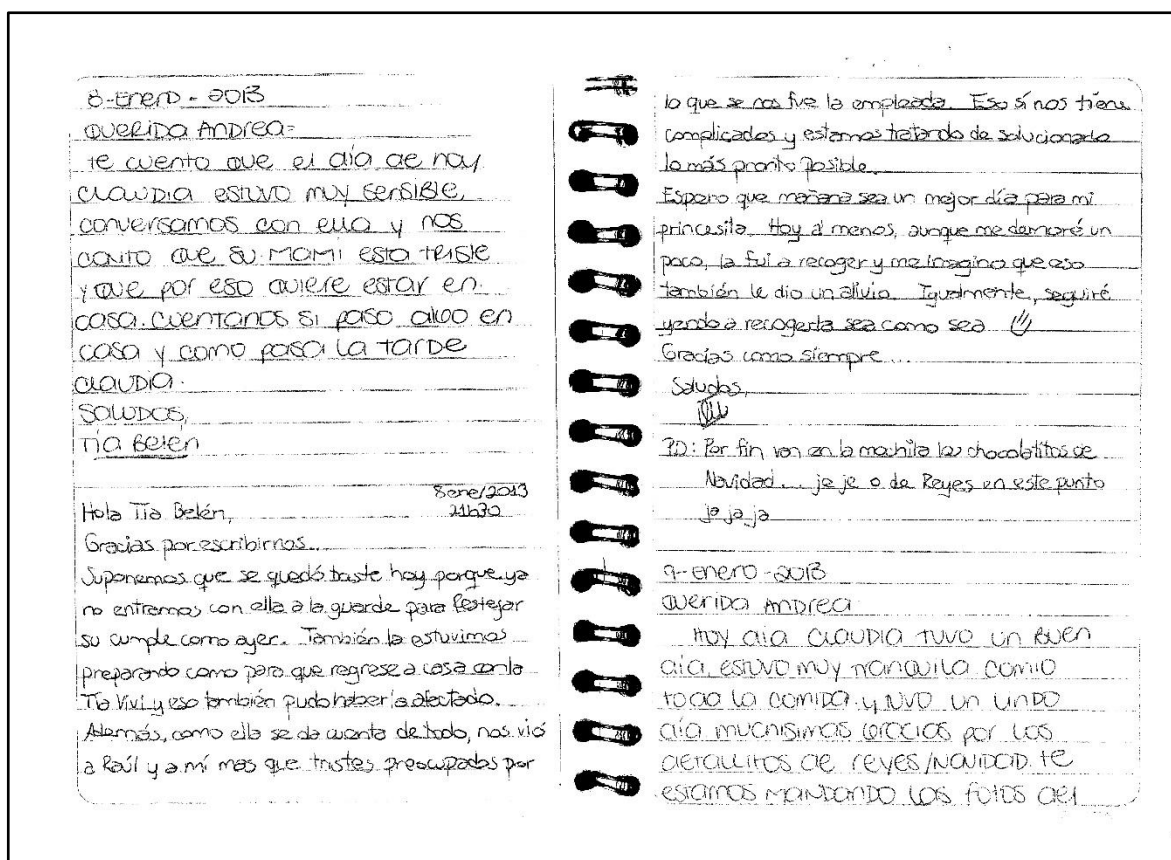 8-Enero-2013
Querida Andrea=
te cuento que el día de hoy
Claudia estuvo muy sensible,
conversamos con ella y nos
conto que su mami esta triste
y que por eso quiere estar en
casa. Cuentanos si paso algo en
casa y como pasa la tarde
Claudia.
Saludos,
Tía Belén
8 ene/2013
21h30
Hola Tía Belén,
Gracias por escribirnos...
Suponemos que se quedó triste hoy porque ya
no entramos con ella a la guarde para festejar
su cumple como ayer. También la estuvimos
preparando como para que regrese a casa con la
Tía Vivi y eso también pudo haberla afectado.
Además, como ella se da cuenta de todo, nos vió
a Raúl y a mí mas que tristes preocupados por
lo que se nos fue la empleada. Eso sí nos tiene
complicados y estamos tratando de solucionarlo
lo más pronto posible.
Espero que mañana sea un mejor día para mi
princesita. Hoy al menos, aunque me demoré un
poco, la fui a recoger y me imagino que eso
también le dio un alivio. Igualmente, seguiré
yendo a recogerla sea como sea
Gracias como siempre...
Saludos,
PD: Por fin van en la mochila los chocolatitos de
Navidad... je je o de Reyes en este punto
ja ja ja
9-Enero-2013
Querida Andrea
Hoy día Claudia tuvo un buen
día, estuvo muy tranquila comio
toda la comida y tuvo un lindo
día muchisimas gracias por los
detallitos de reyes/navidad. te
estamos mandando las fotos del